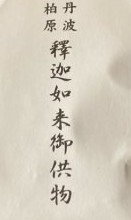 丹波
柏原
釋迦如来御供物